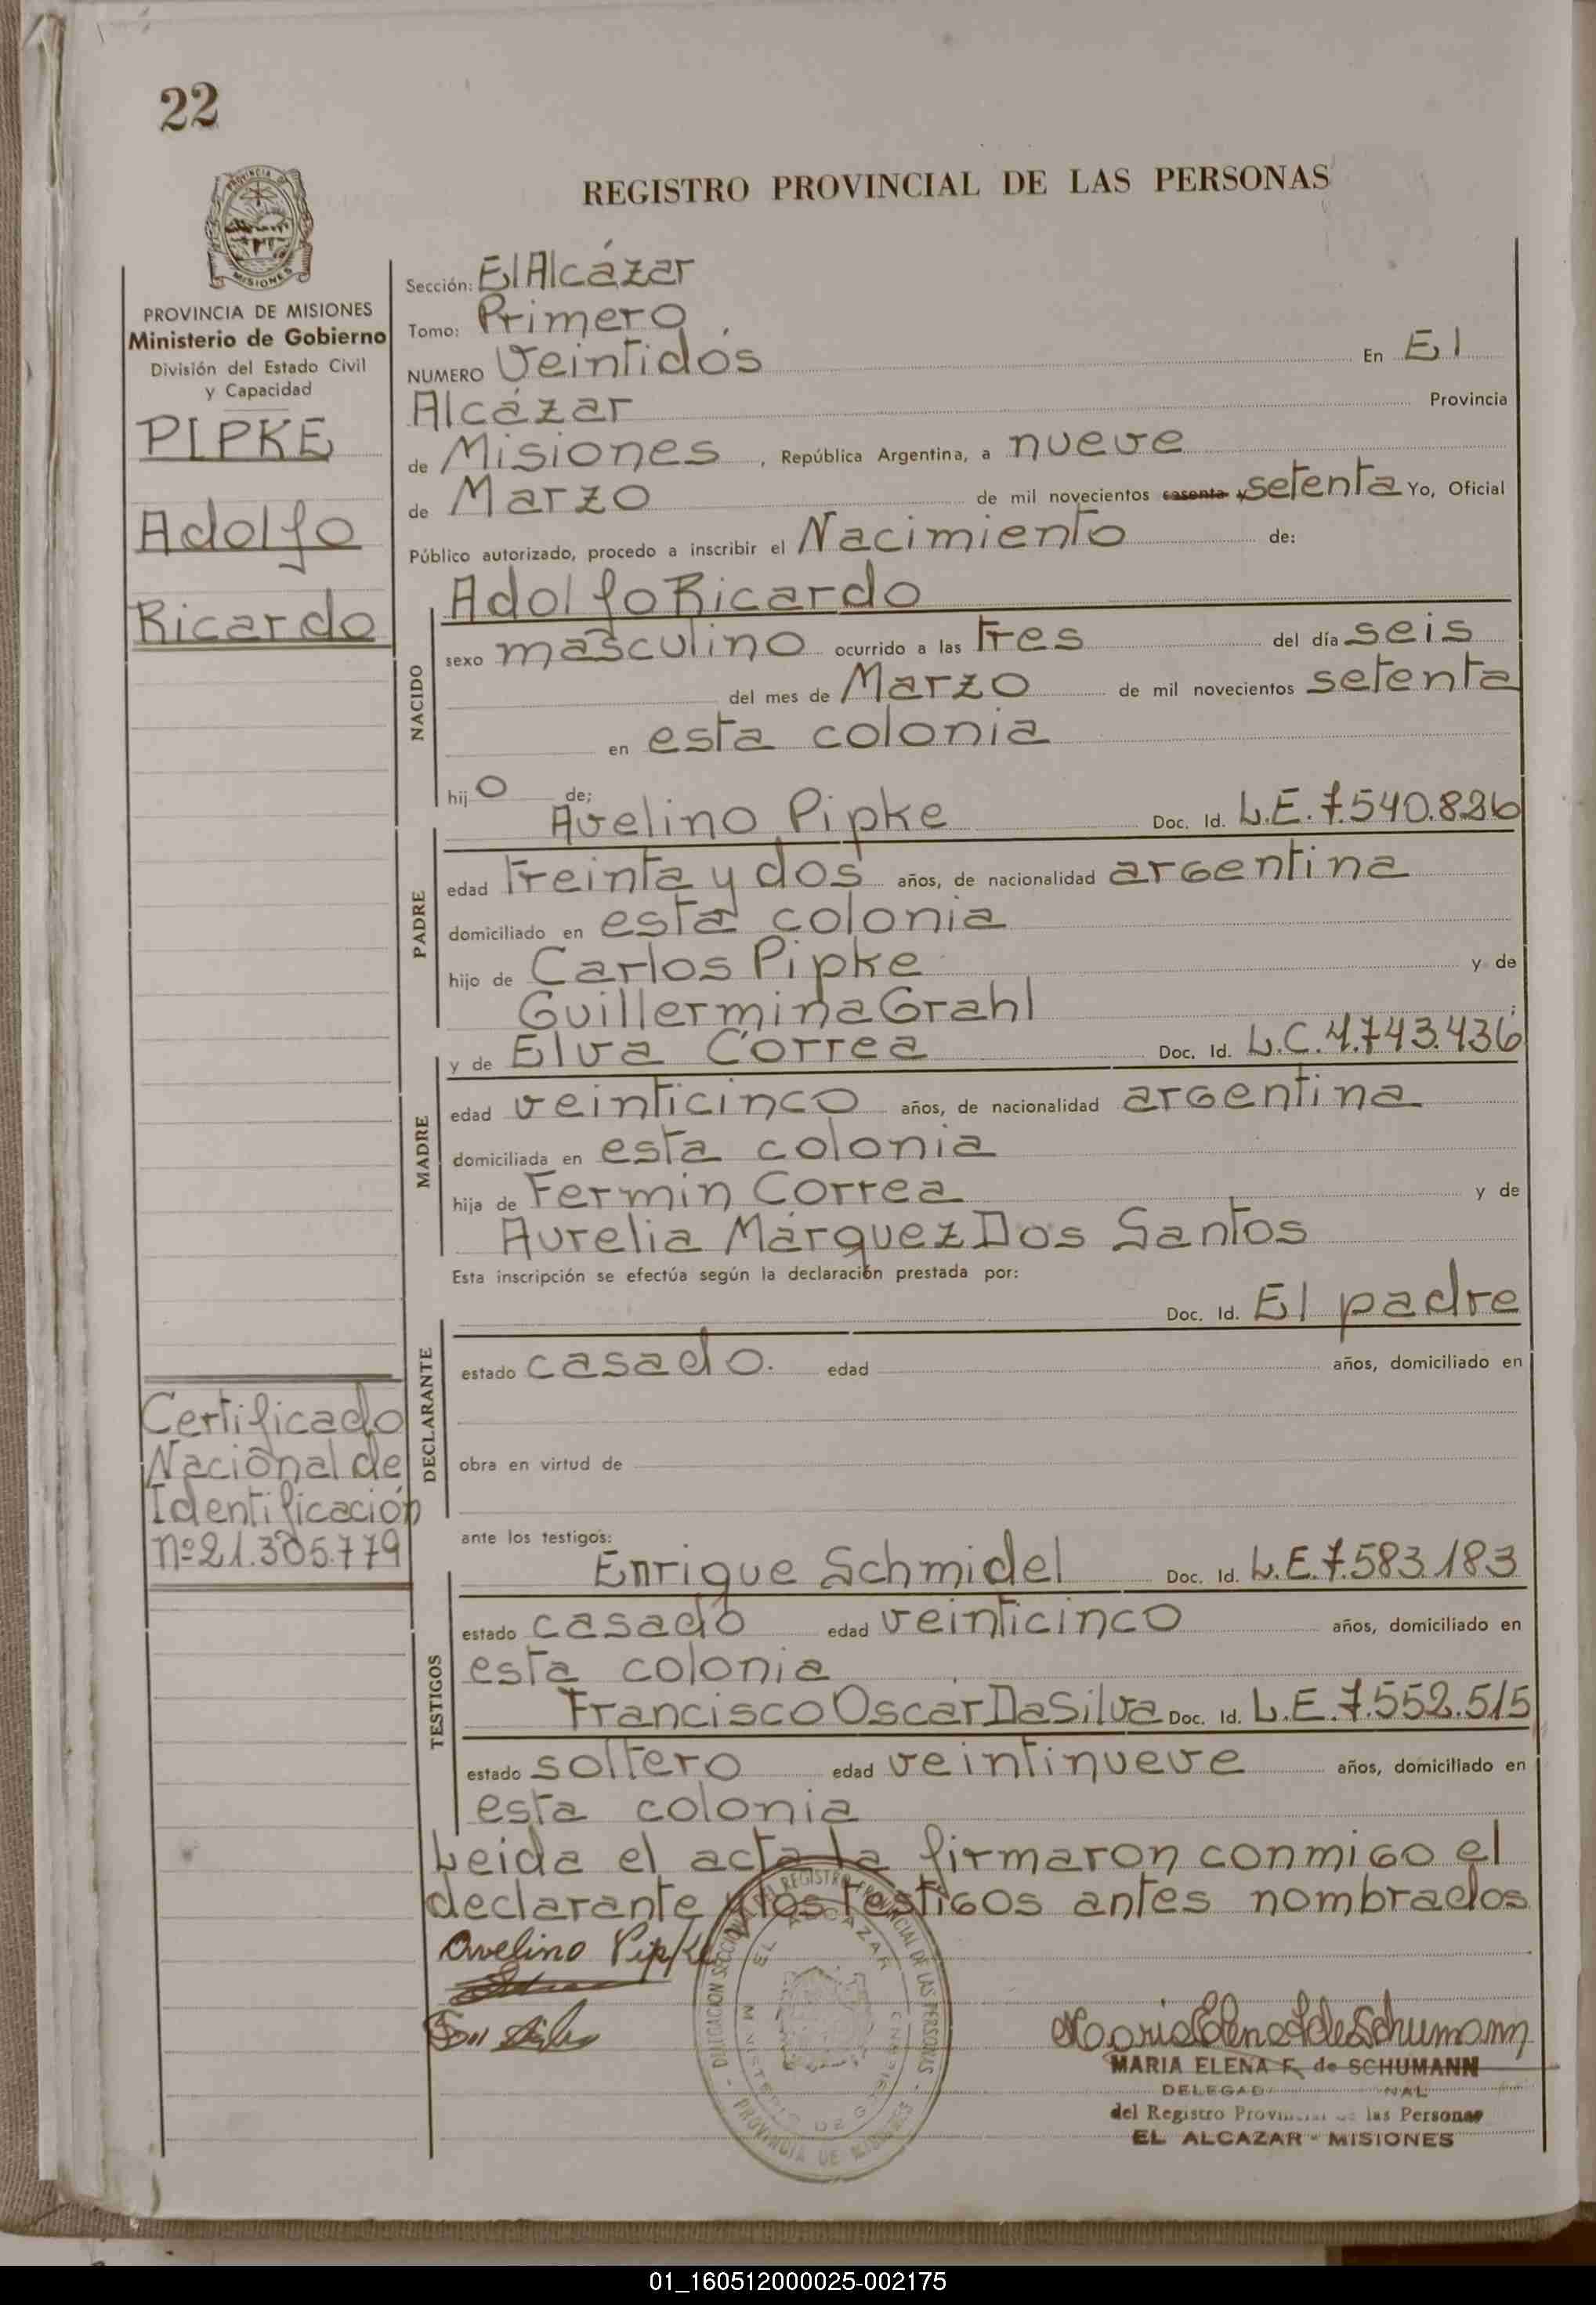 22
REGISTRO PROVINCIAL DE LAS PERSONAS
PROVINCIA DE MISIONES
PROVINCIA DE MISIONES
Ministerio de Gobierno
División del Estado Civil
y Capacidad
PIPKE
Adolfo
Ricardo
Sección: El Alcázar
Tomo: Primero
NUMERO Veintidós En El
Alcázar Provincia
de Misiones, República Argentina, a nueve
de Marzo de mil novecientos sesenta setenta Yo, Oficial
Público autorizado, procedo a inscribir el Nacimiento de:
NACIDO
Adolfo Ricardo
sexo masculino ocurrido a las tres del día seis
del mes de Marzo de mil novecientos setenta
en esta colonia
hijo de;
PADRE
Avelino Pipke Doc. Id. L.E. 7.540.826
edad treinta y dos años, de nacionalidad argentina
domiciliado en esta colonia
hijo de Carlos Pipke y de
Guillermina Grahl
MADRE
y de Elva Correa Doc. Id. L.C. 4.743.436
edad veinticinco años, de nacionalidad argentina
domiciliada en esta colonia
hija de Fermin Correa y de
Aurelia Márquez Dos Santos
Esta inscripción se efectúa según la declaración prestada por:
DECLARANTE
Doc. Id. El padre
estado casado. edad años, domiciliado en
obra en virtud de
Certificado
Nacional de
Identificación
nº 21.305.779
ante los testigos:
TESTIGOS
Enrique Schmidel Doc. Id. L.E. 7.583.183
estado casado edad veinticinco años, domiciliado en
esta colonia
Francisco Oscar Da Silva Doc. Id. L.E. 7.552.515
estado soltero edad veintinueve años, domiciliado en
esta colonia
Leida el acta la firmaron conmigo el
declarante y los testigos antes nombrados
Avelino Pipke
MARIA ELENA F. de SCHUMANN
del Registro Provincial de las Personas
EL ALCAZAR - MISIONES
DELEGACION SECCIONAL DEL REGISTRO PROVINCIAL DE LAS PERSONAS
EL ALCAZAR
PROVINCIA DE MISIONES
01_160512000025-002175